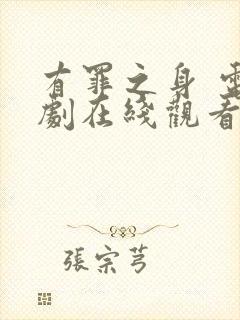 有罪之身 電
劇在綫觀看
張宗芎